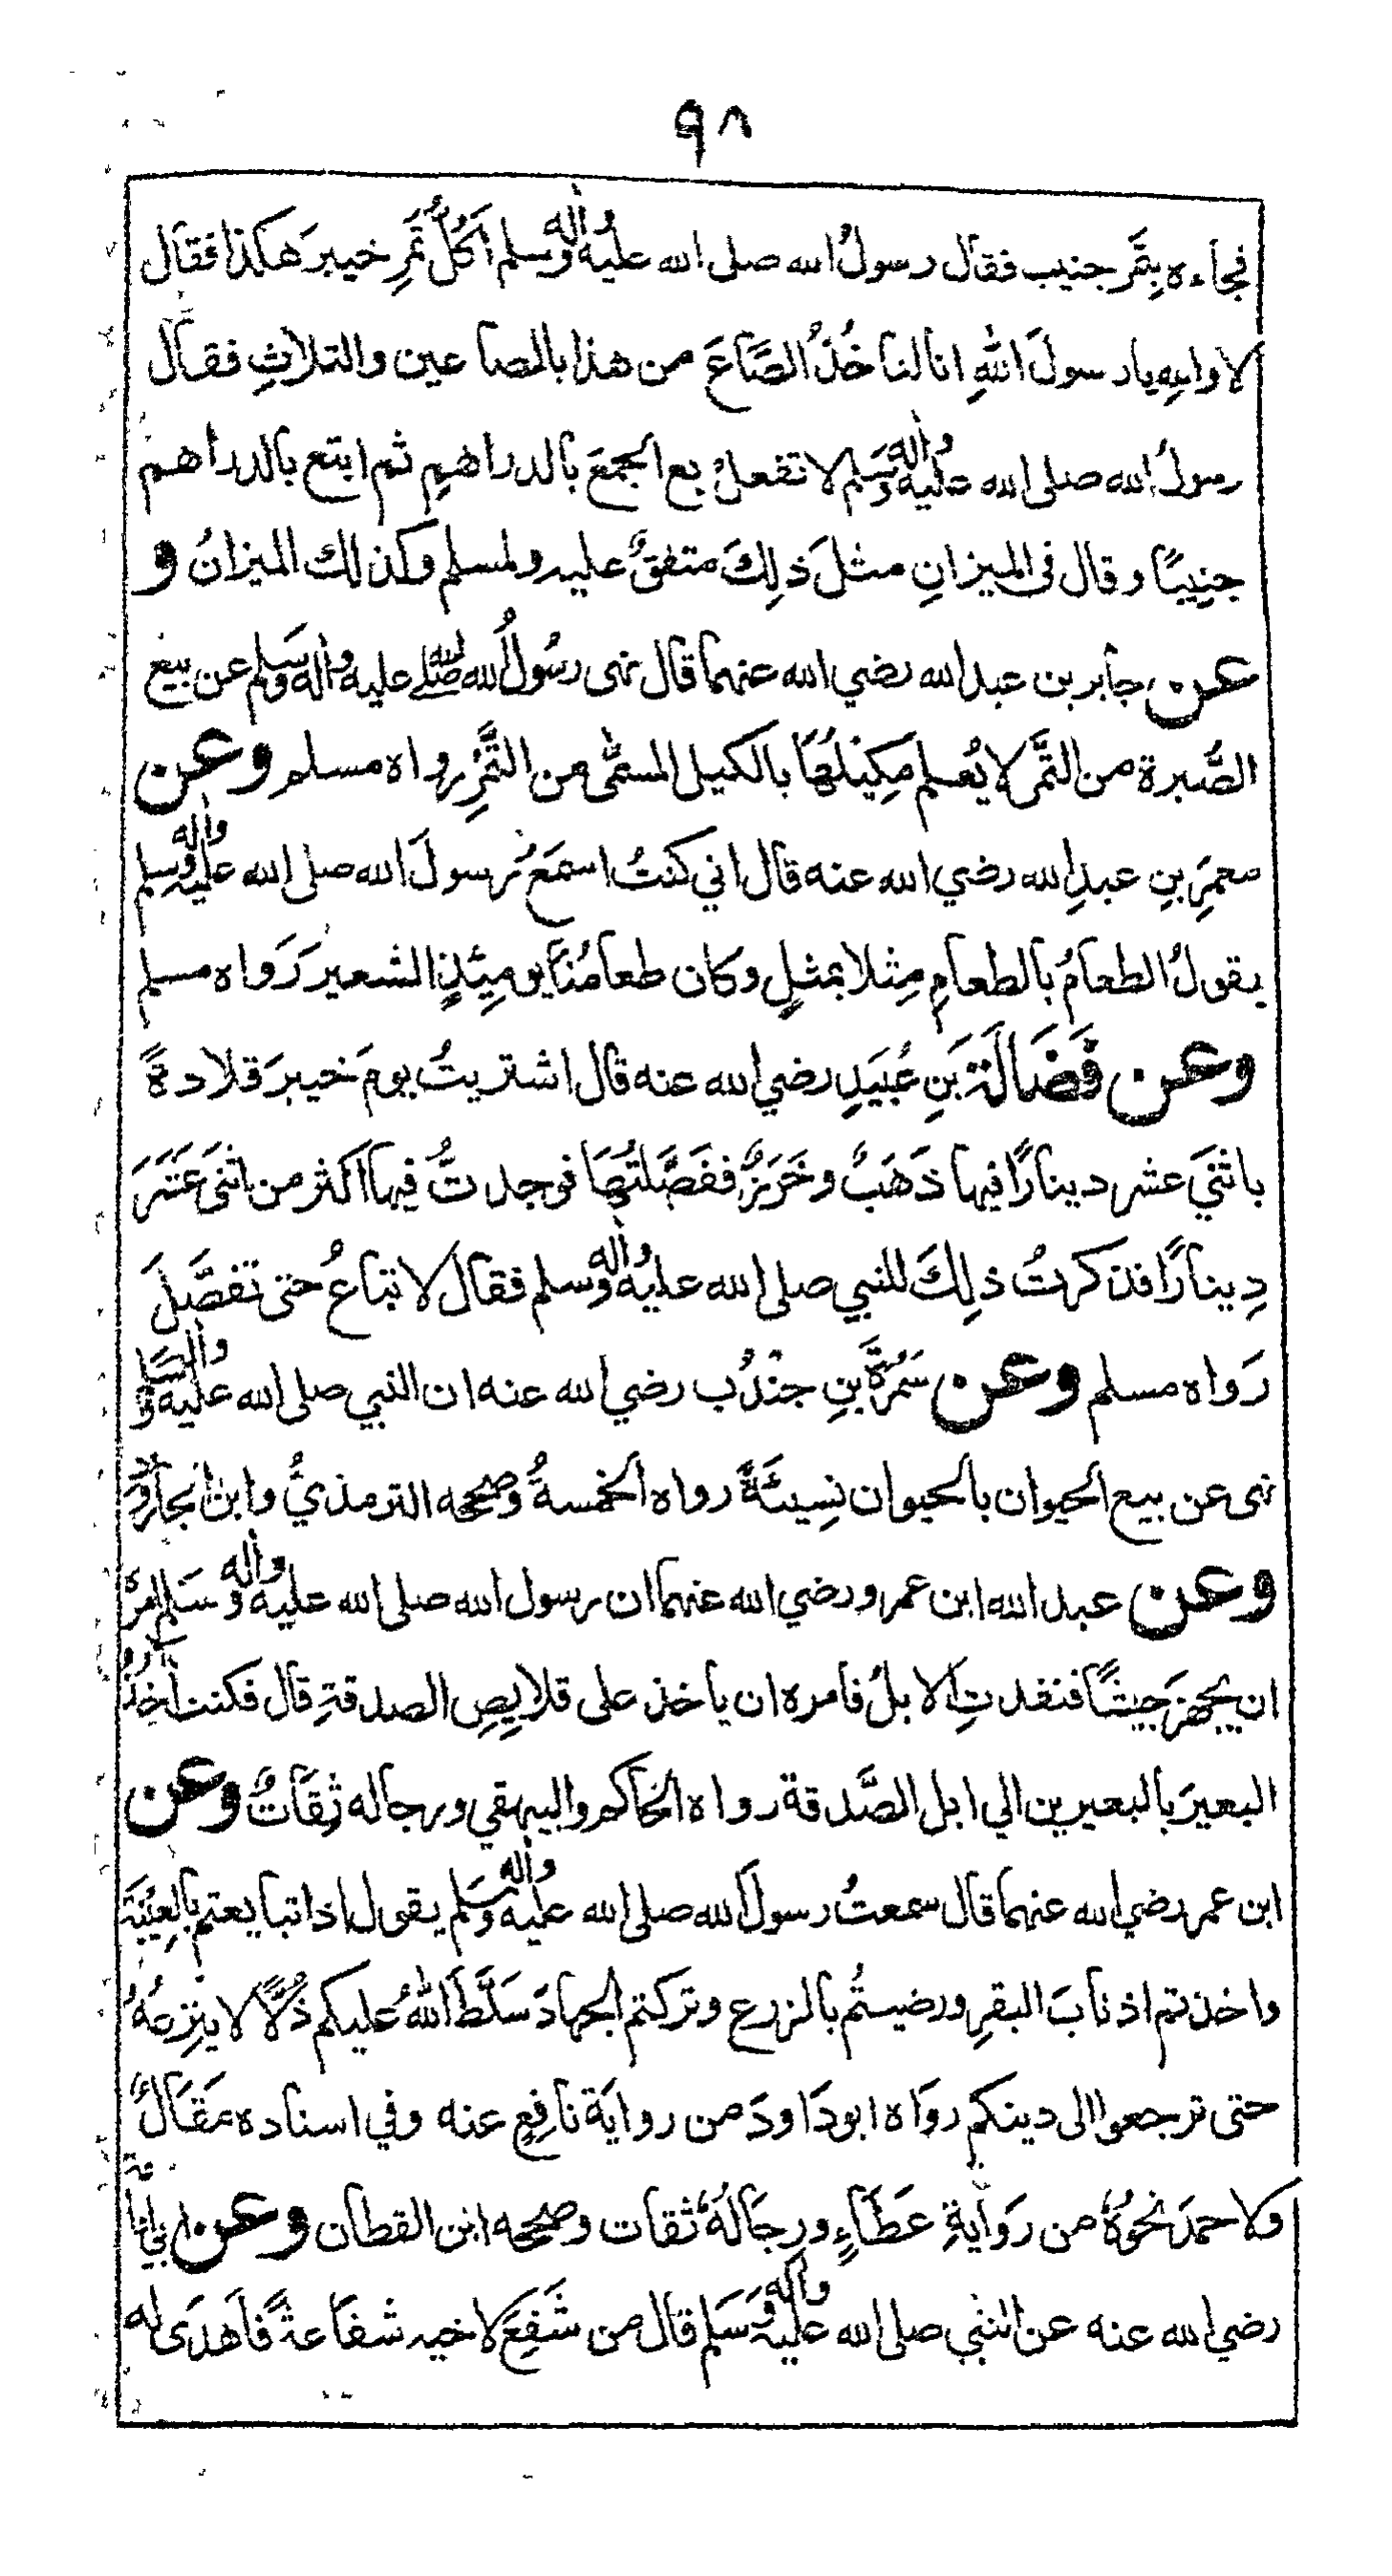 ٩٨
فجاءه بِتَمر جنيب فقال رسولُ الله صلى الله عليه واٰله وسلم اَكُلُّ تَمرِ خيبرَ هكذا فقال
لا والله يا رسولَ اللهِ انا لنا خُذُ الصَّاعَ من هذا بالصاعين والثلاثِ فقال
رسولُ الله صلى الله عليه واٰله وسَلم لا تفعلْ بع الجمعَ بالدراهمِ ثم ابتع بالدراهم
جنِيبًا وقال فى الميزانِ مثلَ ذلِكَ متفقٌ عليه ولمسلم وكذلك الميزانُ و
عن جابر بن عبد الله رضي الله عنهما قال نهى رسُولُ الله صلى الله عليه واٰله وسَلم عن بيع
الصُّبرة من التَّمر لا يُعلم مَكِيْلُهَا بالكيل المسمّٰى من التَّمْرِ رواه مسلم وعن
معمَرِ بنِ عبدِ الله رضي الله عنه قال اني كنتُ اسمَعُ رسولَ الله صلى الله عليه واٰله وسلم
يقولُ الطعامُ بالطعامِ مِثلا بمثلٍ وكان طعامُنَا يومئِذٍ الشعيرَ رَواه مسلم
وعن فَضَالَةَ بَنِ عُبَيَدٍ رضي الله عنه قال اشتريتُ يومَ خيبرَ قلادةً
باثنَي عشر دينارًا فيها ذَهَبٌ وخَرَزٌ ففَصَّلتُهَا فوجدتُّ فيها اكثر من اثنَى عَشَرَ
دِينارًا فذكرتُ ذلِكَ للنبي صلى الله عليه واٰله وسلم فقال لا تباعُ حتى تفصَّلَ
رَواه مسلم وعن سَمُرَةَ بنِ جنْدُب رضي الله عنه ان النبي صلى الله عليه واٰله وسلم
نهى عن بيع الحيوان بالحيوان نَسِيئَةً رواه الخمسةُ وصححه الترمذيُّ وابن الجارود
وعن عبد الله ابن عمرو رضي الله عنهما ان رسول الله صلى الله عليه واٰله وسَلم امره
ان يجهزَ جيشًا فنفدتِ الابلُ فامره ان ياخذ على قلايِصِ الصدقةِ قال فكنت اٰخذُ
البعيرَ بالبعيرين الي ابل الصَّدقة رواه الحاكم والبيهقي ورجاله ثِقَاتٌ وعن
ابن عمر رضي الله عنهما قال سمعتُ رسولَ الله صلى الله عليه واٰله وسَلم يقول اذا تبايعتم بالعِيْنَة
واخذتم اذنابَ البقرِ ورضيتُم بالزرع وتركتم الجهادَ سَلَّطَ اللهُ عليكم ذُلًّا لا ينزِعهُ
حتى ترجعوا الى دينكم روَاه ابو دَاودَ من روايَة نافِعٍ عنه وفي اسناده مَقَالٌ
ولاحمدَ نحوُهُ من رَوايةِ عَطَاءٍ ورِجَالُهُ ثقات وصححه ابن القطان وعن ابي امامة
رضي الله عنه عن النبي صلى الله عليه واٰله وَسَلم قال من شَفِعَ لاخيه شفَاعةً فاَهدَى له